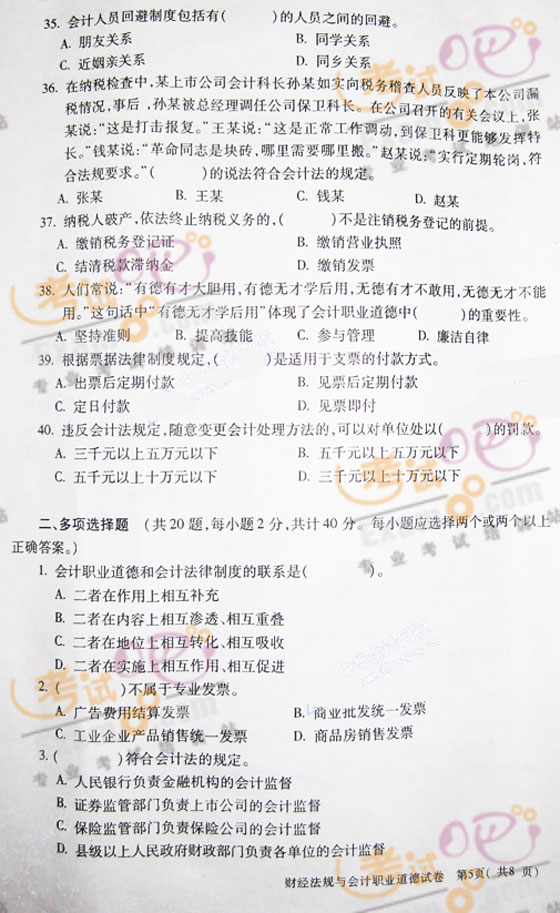 35. 会计人员回避制度包括有(　　)的人员之间的回避。
A. 朋友关系　B. 同学关系
C. 近姻亲关系　D. 同乡关系
36. 在纳税检查中,某上市公司会计科长孙某如实向税务稽查人员反映了本公司漏
税情况,事后,孙某被总经理调任公司保卫科长。在公司召开的有关会议上,张
某说:“这是打击报复。”王某说:“这是正常工作调动,到保卫科更能够发挥特
长。”钱某说:“革命同志是块砖,哪里需要哪里搬。”赵某说:“实行定期轮岗,符
合法规要求。”(　　)的说法符合会计法的规定。
A. 张某　B. 王某　C. 钱某　D. 赵某
37. 纳税人破产,依法终止纳税义务的,(　　)不是注销税务登记的前提。
A. 缴销税务登记证　B. 缴销营业执照
C. 结清税款滞纳金　D. 缴销发票
38. 人们常说:“有德有才大胆用,有德无才学后用,无德有才不敢用,无德无才不能
用。”这句话中“有德无才学后用”体现了会计职业道德中(　　)的重要性。
A. 坚持准则　B. 提高技能　C. 参与管理　D. 廉洁自律
39. 根据票据法律制度规定,(　　)是适用于支票的付款方式。
A. 出票后定期付款　B. 见票后定期付款
C. 定日付款　D. 见票即付
40. 违反会计法规定,随意变更会计处理方法的,可以对单位处以(　　)的罚款。
A. 三千元以上五万元以下　B. 五千元以上五万元以下
C. 五千元以上十万元以下　D. 三千元以上十万元以下
二、多项选择题　(共20题,每小题2分,共计40分。每小题应选择两个或两个以上
正确答案。)
1. 会计职业道德和会计法律制度的联系是(　　)。
A. 二者在作用上相互补充
B. 二者在内容上相互渗透、相互重叠
C. 二者在地位上相互转化、相互吸收
D. 二者在实施上相互作用、相互促进
2. (　　)不属于专业发票。
A. 广告费用结算发票　B. 商业批发统一发票
C. 工业企业产品销售统一发票　D. 商品房销售发票
3. (　　)符合会计法的规定。
A. 人民银行负责金融机构的会计监督
B. 证券监管部门负责上市公司的会计监督
C. 保险监管部门负责保险公司的会计监督
D. 县级以上人民政府财政部门负责各单位的会计监督
财经法规与会计职业道德试卷　第5页(共8页)
考试吧
Exam8.com
专业考试培训站